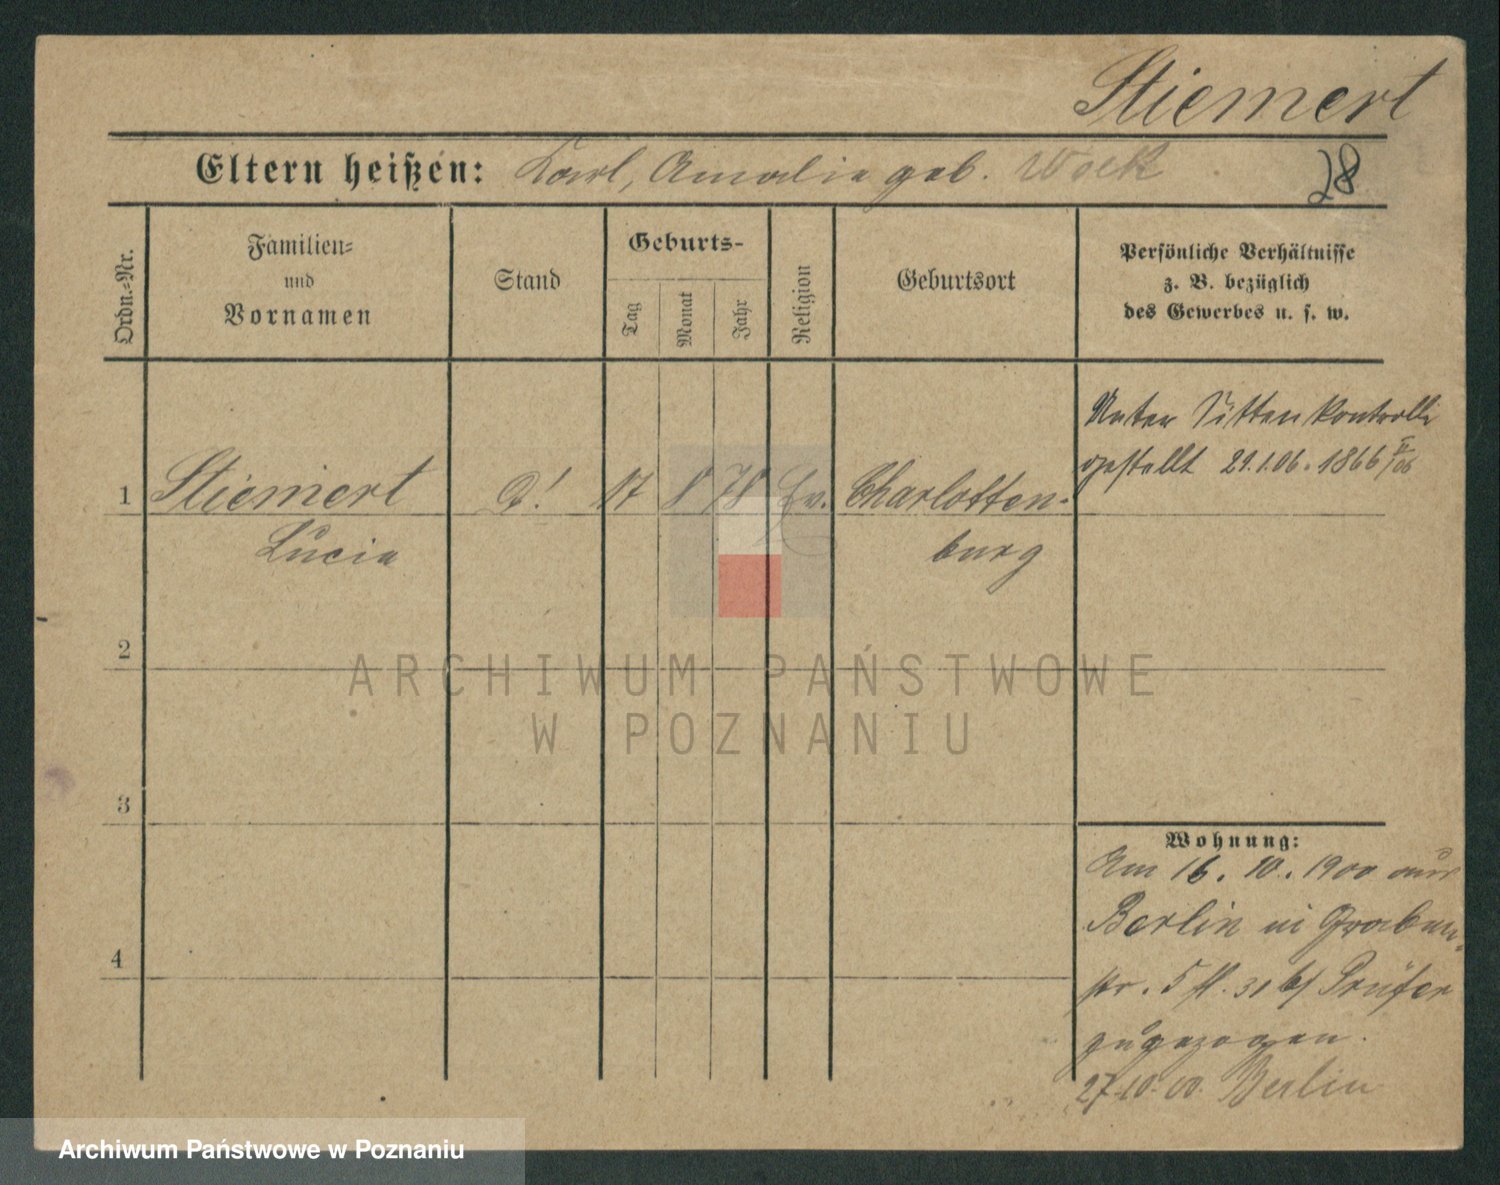 Stiemert
Eltern heißen: Karl, Amalie geb. Wock
28
Ordn.-Nr.
Familien-
und
Vornamen
Stand
Geburts-
Tag
Monat
Jahr
Religion
Geburtsort
Persönliche Verhältnisse
z. B. bezüglich
des Gewerbes u. s. w.
Unter Sittenkontrolle
gestellt 29.1.06. 1866
1 Stiemert 17 8 78 Ev. Charlotten-
Lucie burg
2
3
4
ARCHIWUM PAŃSTWOWE
W POZNANIU
Wohnung:
Am 16. 10. 1900 aus
Berlin in Graben-
str. 5 31 Prüfer
zugezogen.
27.10.00. Berlin
Archiwum Państwowe w Poznaniu